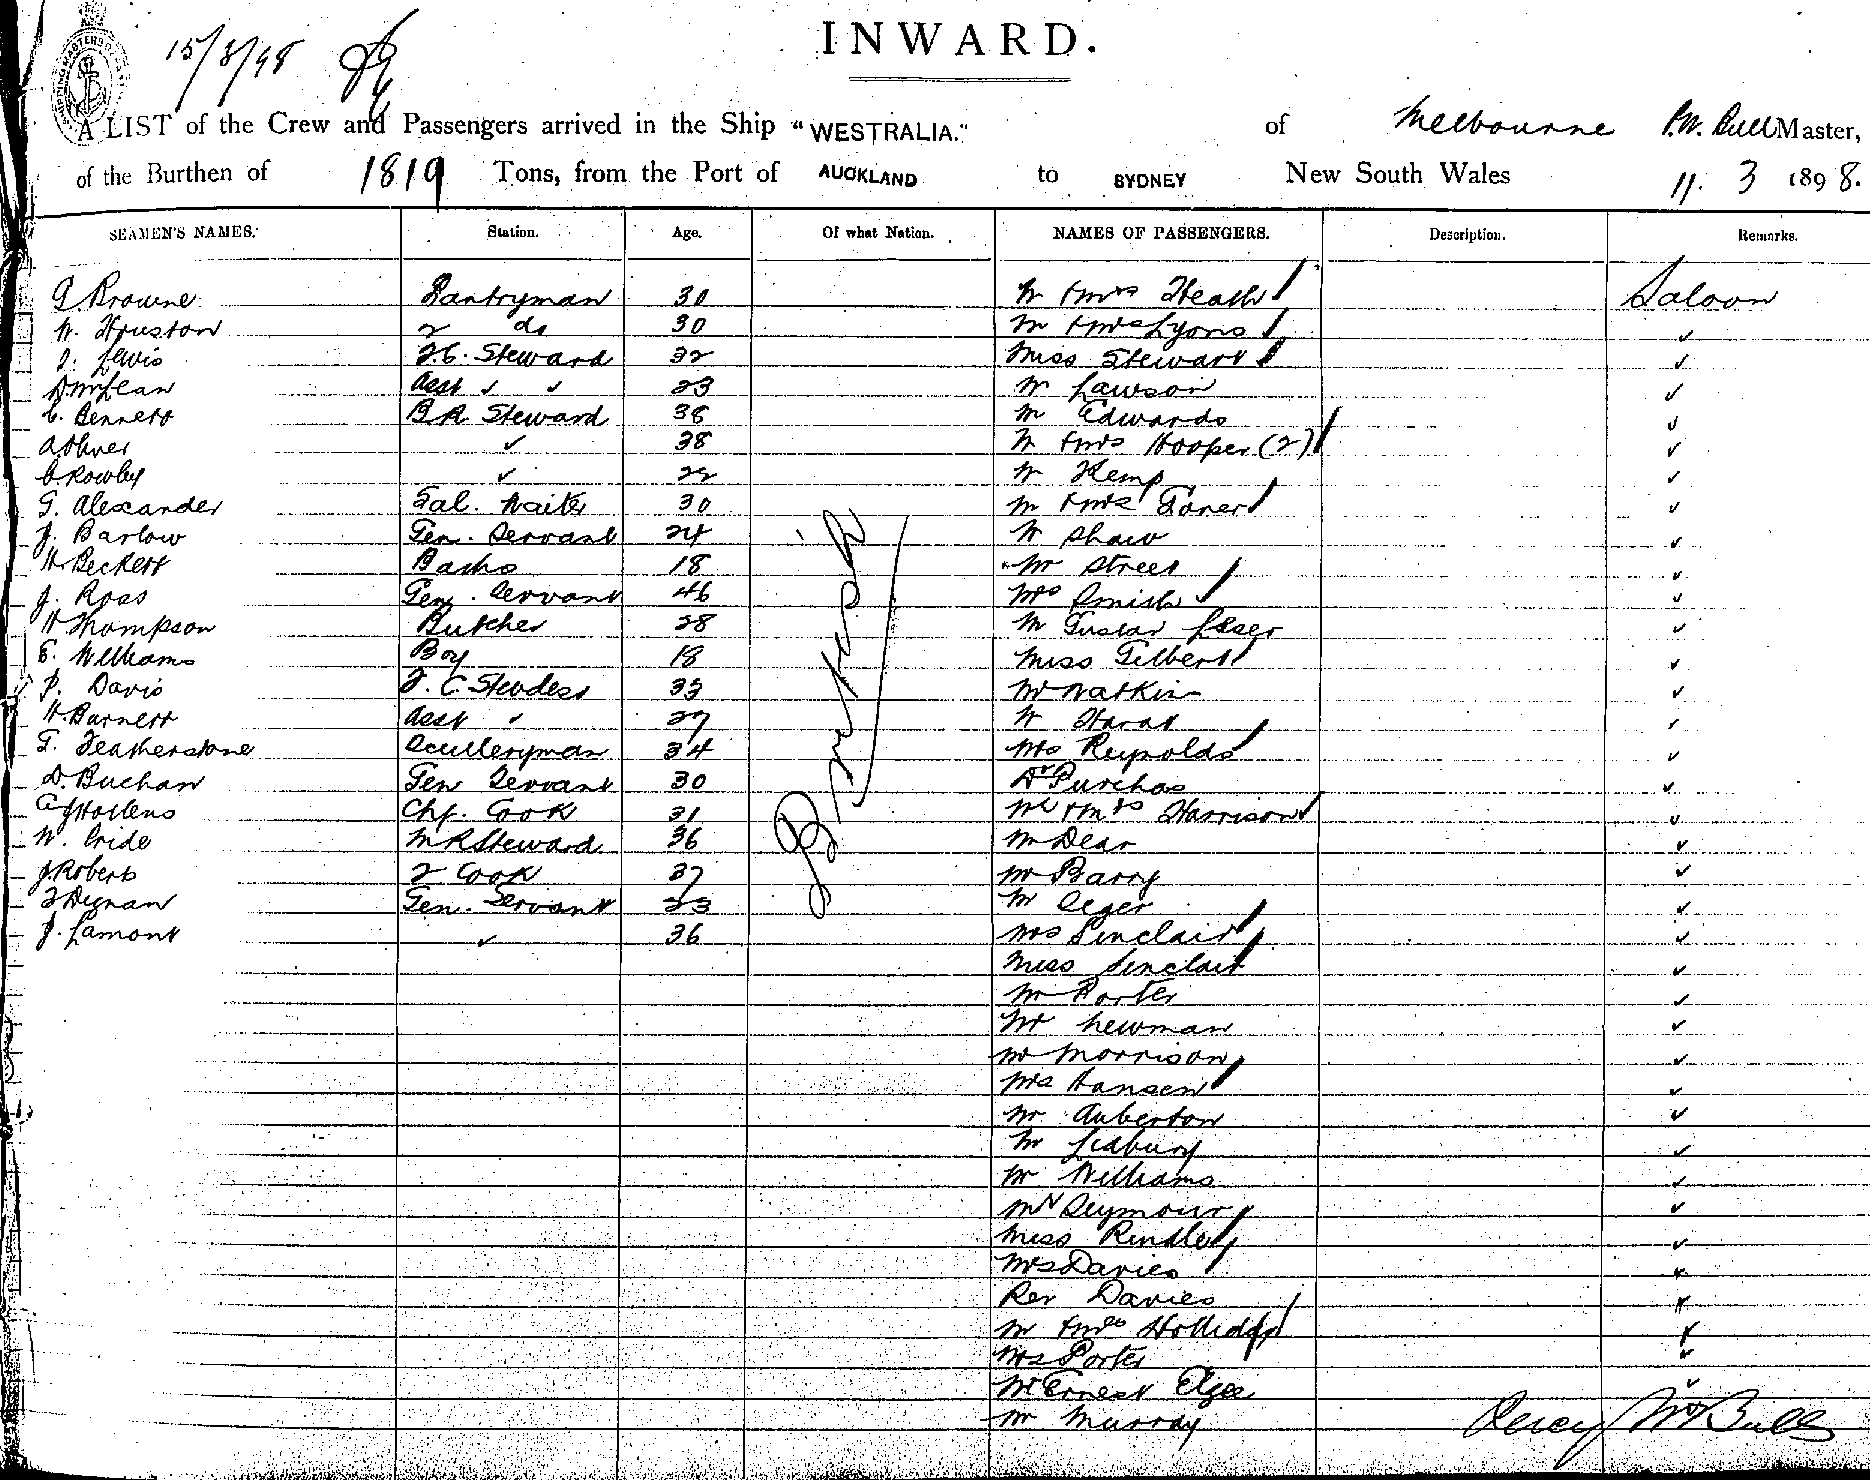 15/3/98
INWARD.
A LIST of the Crew and Passengers arrived in the Ship "WESTRALIA." of Melbourne P.W. Bull Master,
of the Burthen of 1819 Tons, from the Port of AUCKLAND to SYDNEY New South Wales 11. 3 1898.
SEAMEN'S NAMES. Station. Age. Of what Nation. NAMES OF PASSENGERS. Description. Remarks.
G. Browne Pantryman 30 Mr & Mrs Heath Saloon
W. Houston 2 do 30 Mr & Mrs Lyons ✓
J. Lewis F.C. Steward 32 Miss Stewart ✓
D. McLean Asst ✓ ✓ 23 Mr Lawson ✓
C. Bennett B.R. Steward 38 Mr Edwards ✓
A. Oliver ✓ 38 Mr & Mrs Hooper (2) ✓
C. Rowley ✓ 22 Mr Kemp ✓
G. Alexander Sal. Waiter 30 Mr & Mrs ✓
J. Barlow Gen. Servant 24 Mr Shaw ✓
H. Beckett 18 Mr Street ✓
J. Ross Gen. Servant 46 Mrs Smith ✓
H. Thompson Butcher 28 Mr Gustav ✓
E. Williams Boy 18 Miss Gilbert ✓
P. Davis F.C. Stewdess 33 Mr Watkin ✓
H. Barnett Asst ✓ 27 Mr ✓
G. Featherstone Sculleryman 34 Mrs Reynolds ✓
D. Buchan Gen Servant 30 Dr Purchas ✓
Chf. Cook 31 Mr & Mrs Harrison ✓
W. Pride M.R. Steward 36 Mr Dear ✓
J. Roberts 2 Cook 37 Mr Barry ✓
F. Dignan Gen. Servant 23 Mr ✓
J. Lamont ✓ 36 Mrs Sinclair ✓
British
Miss Sinclair ✓
Mr Porter ✓
Mr Newman ✓
Mr Morrison ✓
Mrs Hansen ✓
Mr Auberton ✓
Mr Ledbury ✓
Mr Williams ✓
Mr Seymour ✓
Miss Rindley ✓
Mrs Davies ✓
Rev Davies ✓
Mr & Mrs Holliday ✓
Mrs Porter ✓
Mr Ernest Elgee ✓
Mr Murray
Percy W. Bull